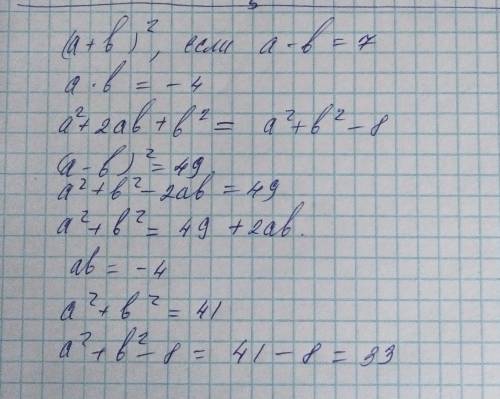 (a+b)², если a-b=7
a·b = -4
a²+2ab+b² = a²+b²-8
(a-b)² = 49
a²+b²-2ab = 49
a²+b² = 49 +2ab.
ab = -4
a²+b² = 41
a²+b²-8 = 41-8 = 33